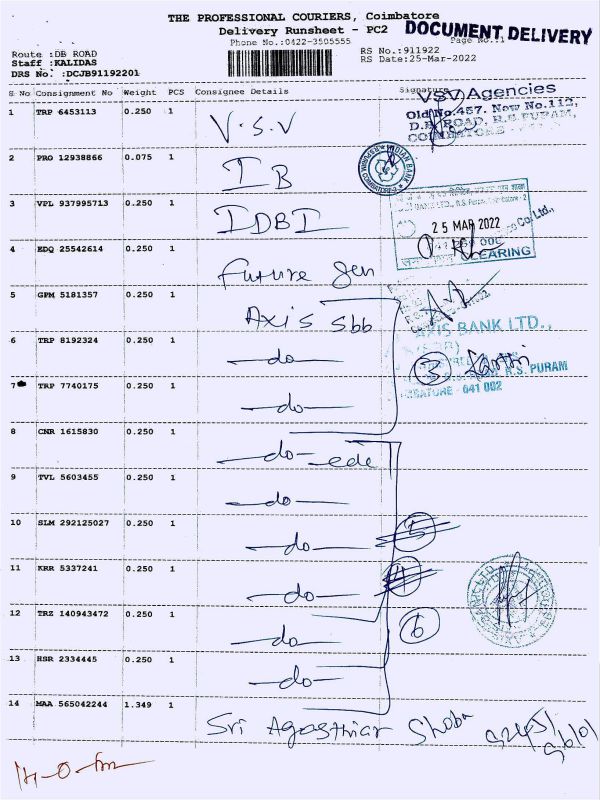 THE PROFESSIONAL COURIERS, Coimbatore
Delivery Runsheet - PC2
DOCUMENT DELIVERY
Phone No.:0422-3505555
Page No.:1
Route :DB ROAD
Staff :KALIDAS
DRS No. :DCJB91192201
RS No.:911922
RS Date:25-Mar-2022
S No Consignment No Weight PCS Consignee Details Signature
VSV Agencies
Old No.457, New No.112,
D.B. ROAD, R.S. PURAM,
1 TRP 6453113 0.250 1 V.S.V
2 PRO 12938866 0.075 1 IB
INDIAN BANK
3 VPL 937995713 0.250 1 IDBI
25 MAR 2022
CLEARING
4 EDQ 25542614 0.250 1 Future Gen
5 GPM 5181357 0.250 1 Axis Sbb
AXIS BANK LTD.,
6 TRP 8192324 0.250 1 -do-
3
R.S. PURAM
641 002
7 TRP 7740175 0.250 1 -do-
8 CNR 1615830 0.250 1 -do- edc
9 TVL 5603455 0.250 1 -do-
10 SLM 292125027 0.250 1 -do-
5
11 KRR 5337241 0.250 1 -do-
12 TRZ 140943472 0.250 1 -do-
6
13 HSR 2334445 0.250 1 -do-
14 MAA 565042244 1.349 1 Sri Agasthiar Shoba